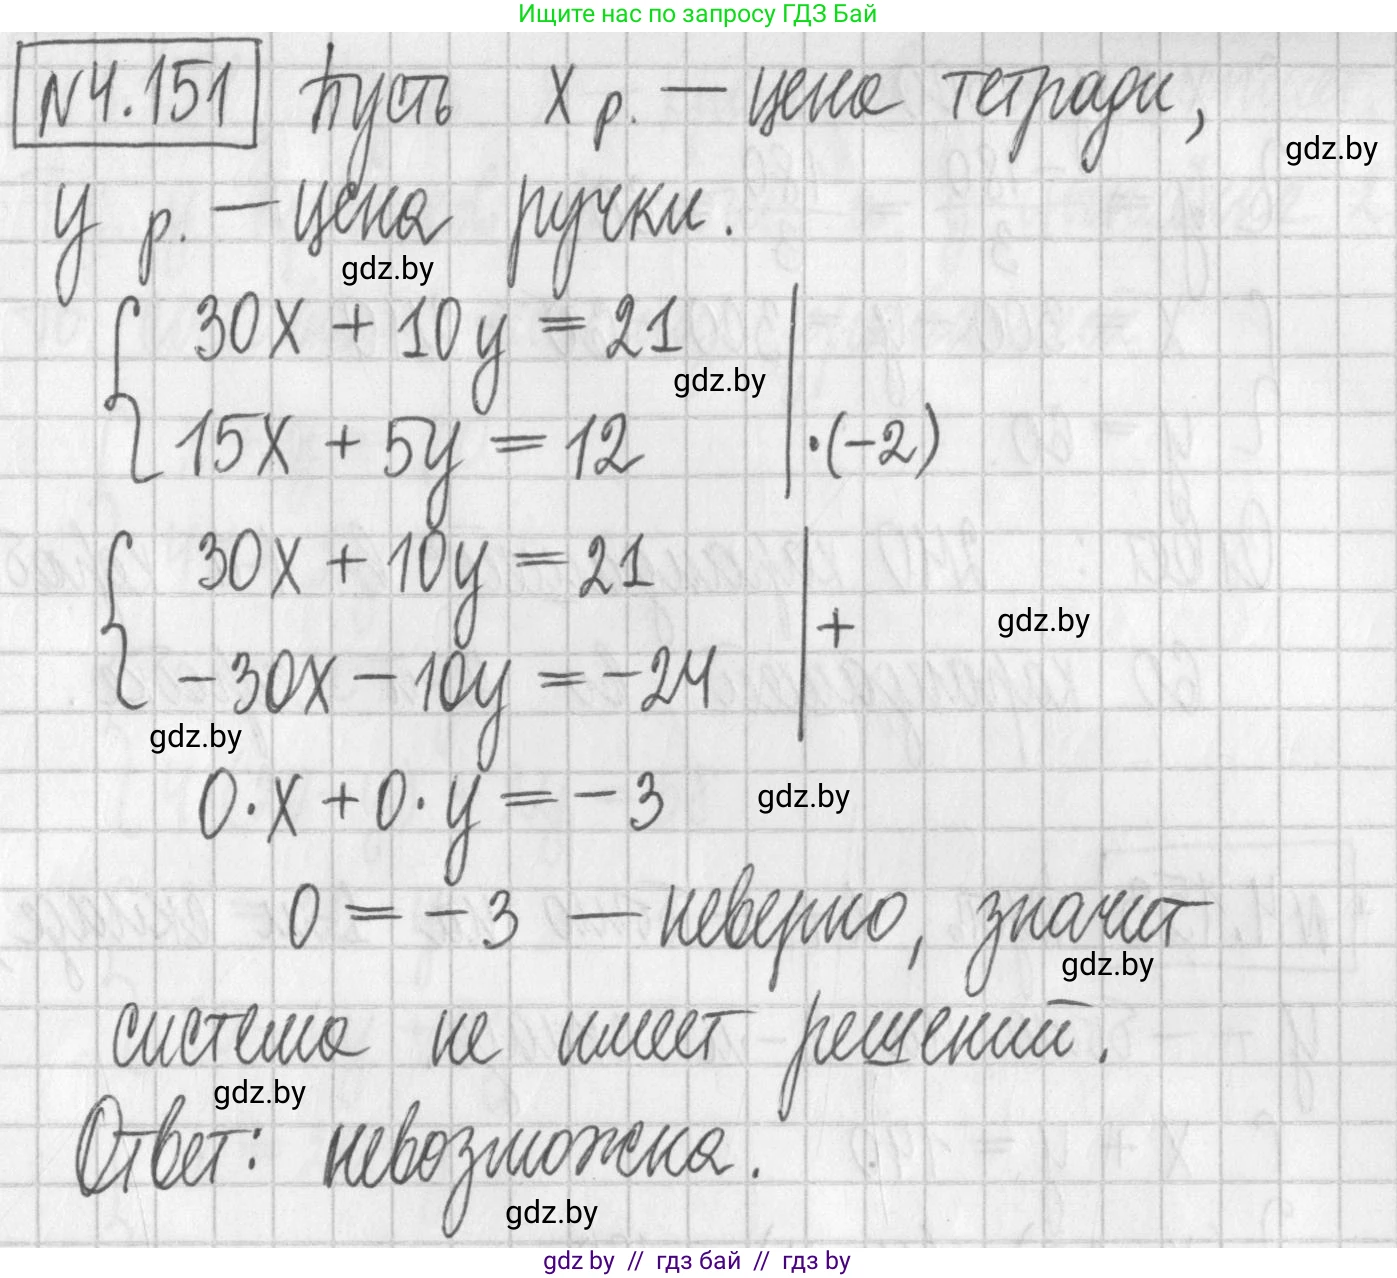 Ищите нас по запросу ГДЗ Бай
N4.151 Пусть x р. — цена тетради,
gdz.by
y р. — цена ручки.
gdz.by
30x + 10y = 21
gdz.by
15x + 5y = 12 | ·(-2)
30x + 10y = 21
+
gdz.by
-30x - 10y = -24
gdz.by
0·x + 0·y = -3
gdz.by
0 = -3 — неверно, значит
gdz.by
система не имеет решений.
gdz.by
Ответ: невозможна.
gdz.by
gdz by // гдз бай // гдз by